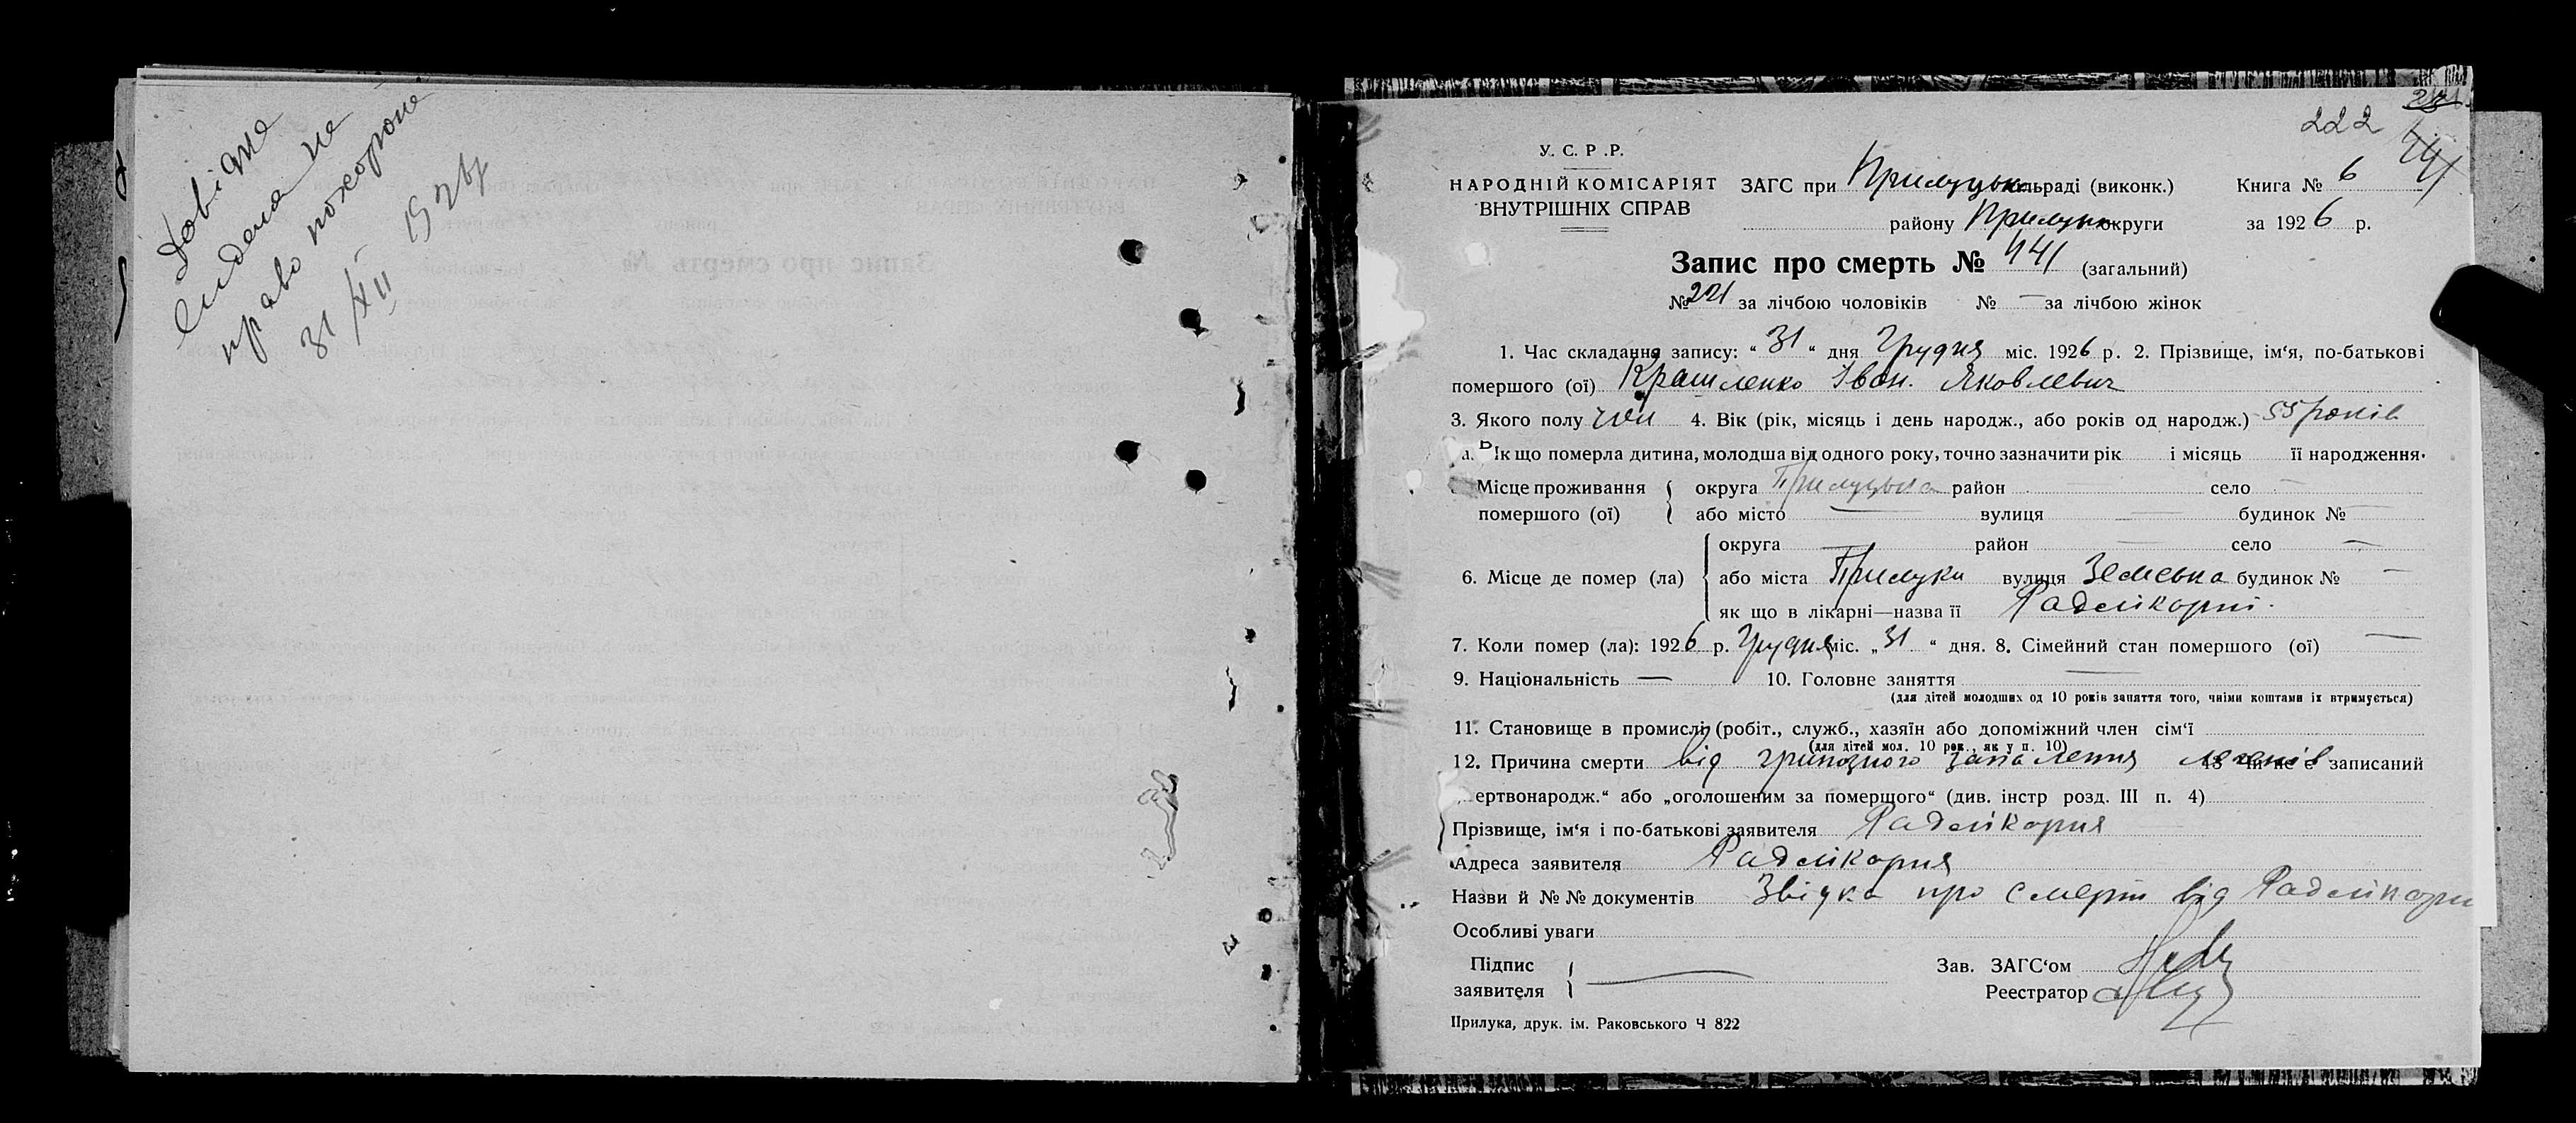 Довідка
видана на
право похорони
31/XII 1926
222
У. С. Р. Р.
НАРОДНІЙ КОМІСАРІЯТ
ВНУТРІШНІХ СПРАВ
ЗАГС при Прилуцьк. сільраді (виконк.)
району Прилуцьк округи
Книга № 6
за 1926 р.
Запис про смерть № 441 (загальний)
№ 221 за лічбою чоловіків № — за лічбою жінок
1. Час складання запису: “ 31 “ дня Грудня міс. 1926 р. 2. Прізвище, ім‘я, по-батькові
помершого (ої) Крашленко Іван. Яковлевич
3. Якого полу чол 4. Вік (рік, місяць і день народж., або років од народж.) 55 років
а. Як що померла дитина, молодша від одного року, точно зазначити рік і місяць її народження.
Місце проживання помершого (ої) округа Прилуцька район село —
або місто — вулиця — будинок № —
6. Місце де помер (ла) округа — район — село —
або міста Прилуки вулиця Земська будинок № —
як що в лікарні—назва її Радлікарні.
7. Коли помер (ла): 1926 р. Грудня міс. „ 31 “ дня. 8. Сімейний стан помершого (ої) —
9. Національність — 10. Головне заняття —
(для дітей молодших од 10 років заняття того, чиїми коштами їх втримується)
11. Становище в промислі (робіт., служб., хазяїн або допоміжний член сім‘ї
(для дітей мол. 10 рок., як у п. 10)
12. Причина смерти від грипозного запалення легенів 13 Чи не є записаний
„мертвонародж.“ або „оголошеним за померщого“ (див. інстр розд. III п. 4)
Прізвище, ім‘я і по-батькові заявителя Радлікарня
Адреса заявителя Радлікарня
Назви й №№ документів Звідка про смерть від Радлікарн
Особливі уваги
Підпис заявителя —
Зав. ЗАГС‘ом
Реестратор
Прилука, друк. ім. Раковського Ч 822